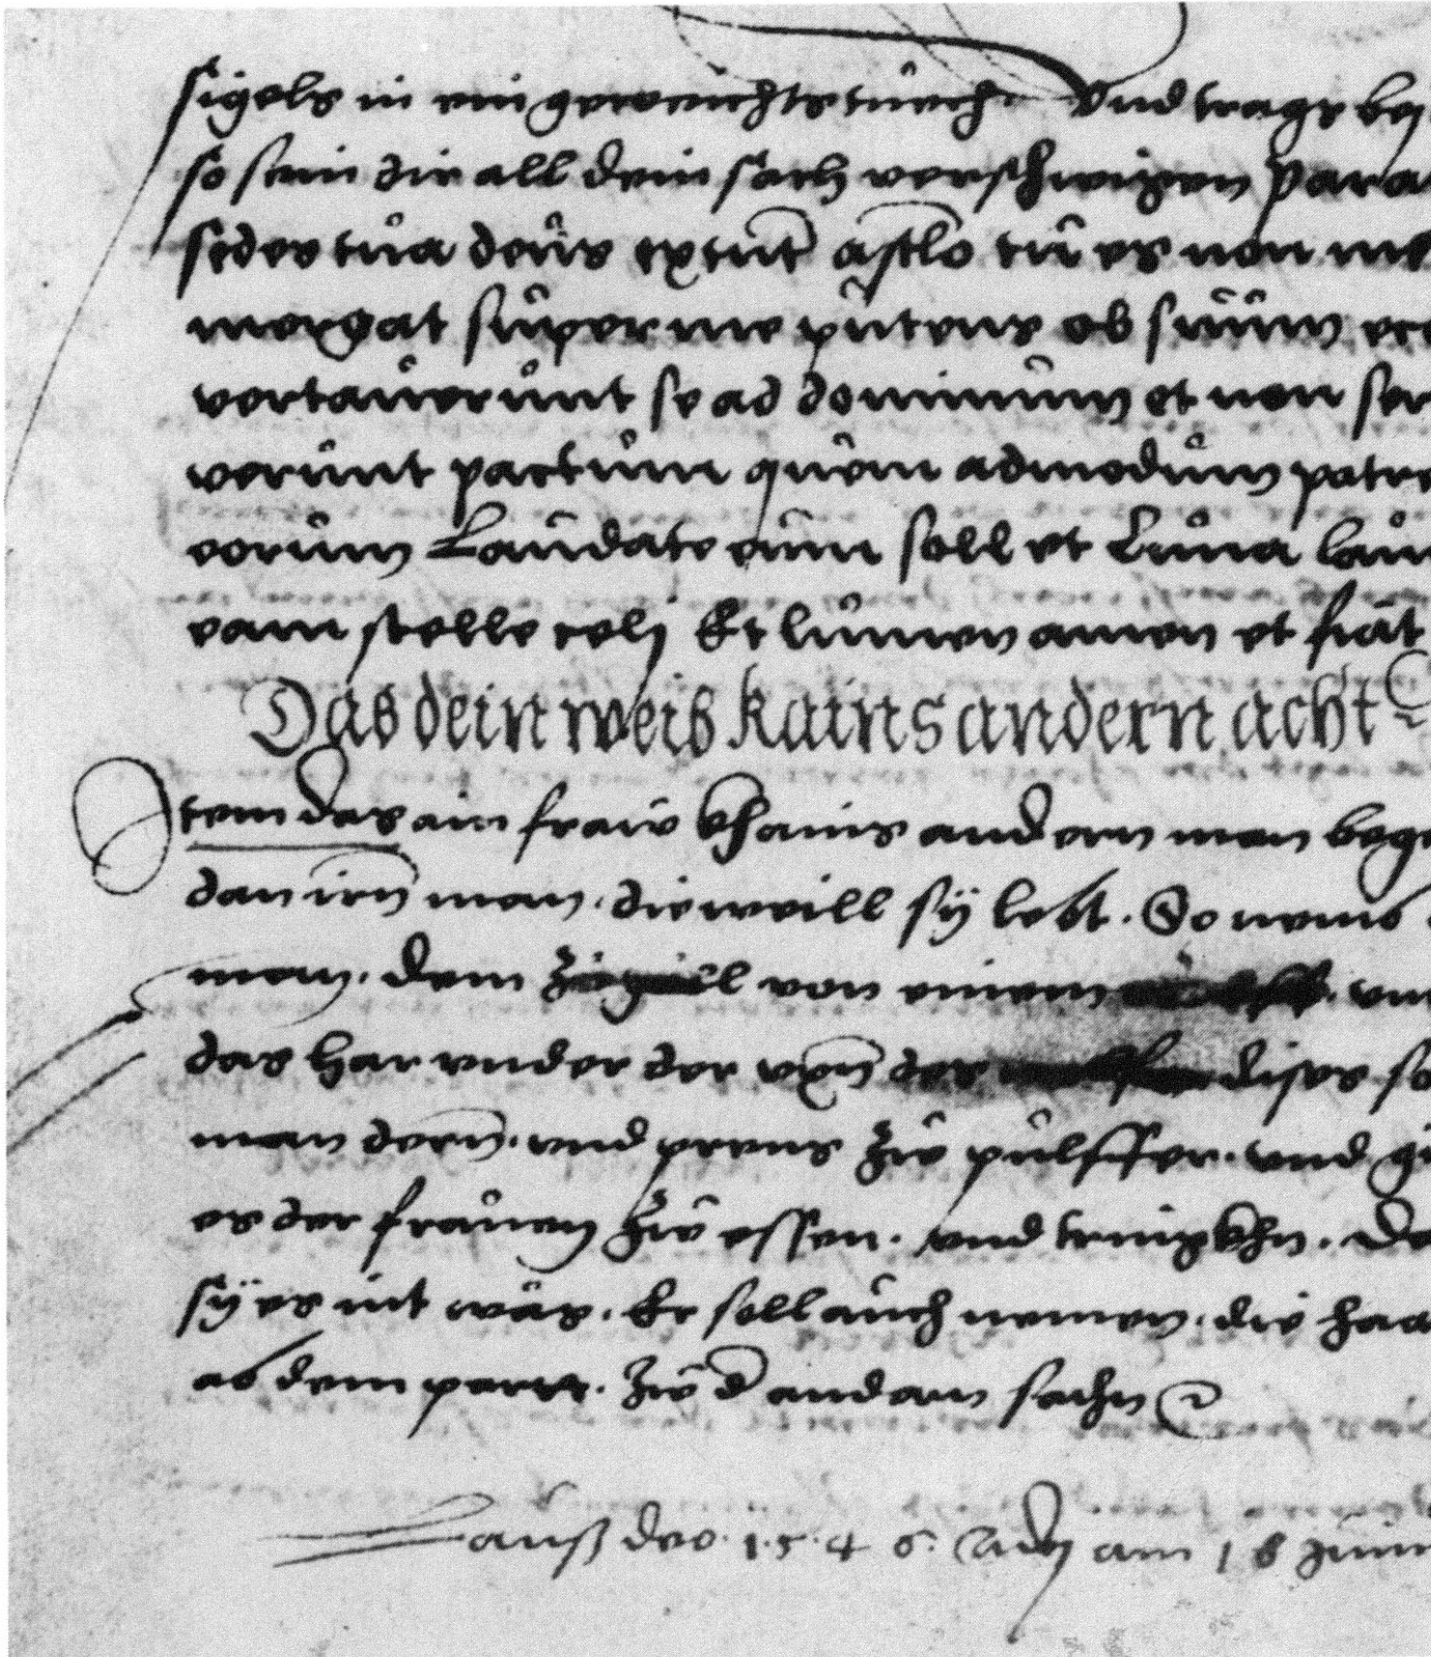 sigels in ein geweichts tuech. Vnd trags bey
so sein dir all dein sach verschwigen Para
sedes tua deus extunc tu es non me
mergat super me puteus os suum
vertauerunt se ad dominum et non ser
verunt pactum quem admodum patre
eorum Laudate eum soll et Luna lau
eam stelle celj Et lumen amen et fiat
Das dein weib kains andern acht
Item das ain fraw khains andern man bege
dan irn man. dieweill sy lebt. So nemb
man. dem von einem vn
das har vnder der der dises so
man dern. vnd prens zw pulffer. vnd gi
es der frauen zw essen. vnd tringkhn. Da
sy es nit wäs. Er soll auch nemen. die haa
ab dem partt. zw d andarn sachn
Lauß deo. 1.5.4.6. Adj am 18 Juni